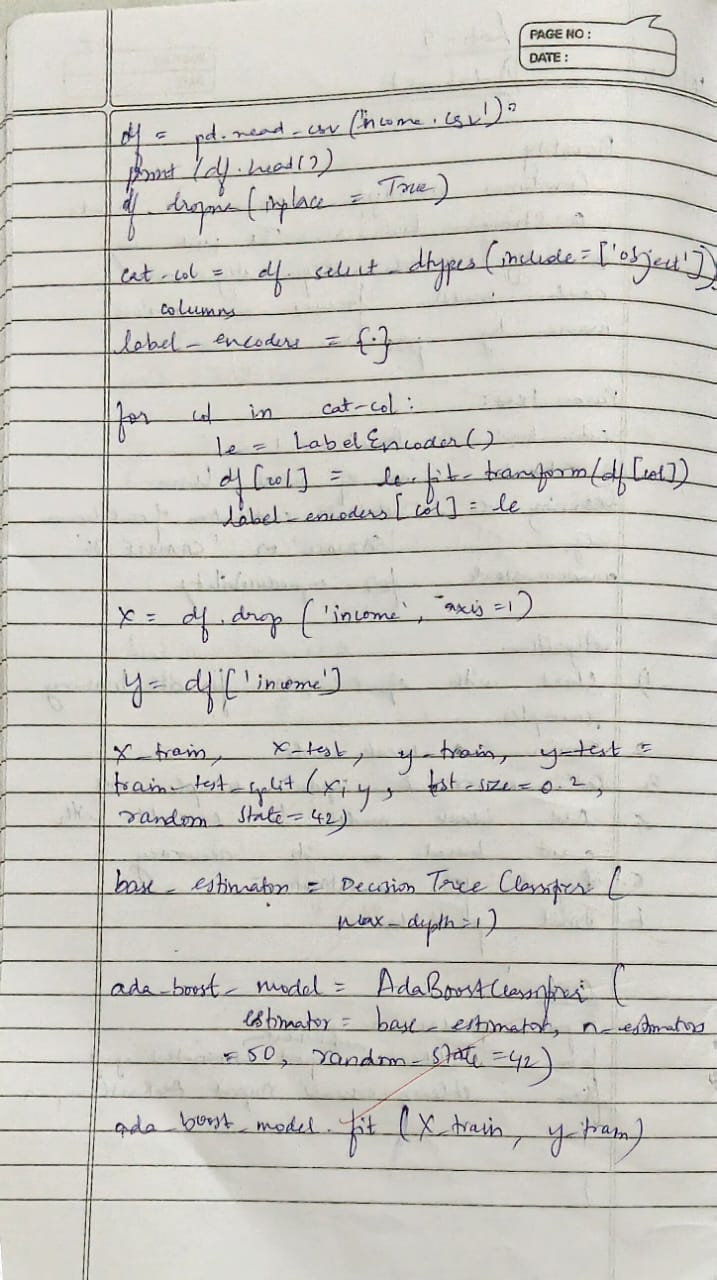 PAGE NO :
DATE :
df = pd.read_csv('income.csv')
print (df.head())
df.dropna (inplace = True)
cat-col = df. select_dtypes (include = ['object']).
columns
label_encoders = {}
for col in cat-col :
le = LabelEncoder()
df [col] = le.fit_transform(df [col])
label_encoders [col] = le
X = df.drop ('income', axis =1)
y = df ['income']
X_train, X_test, y_train, y_test =
train_test_split (X, y, test_size = 0.2,
random_state = 42)
base_estimator = Decision Tree Classifier (
max_depth=1)
ada_boost_model = AdaBoostClassifier (
estimator = base_estimator, n_estimators
= 50, random_state =42)
ada_boost_model.fit (X_train, y_train)